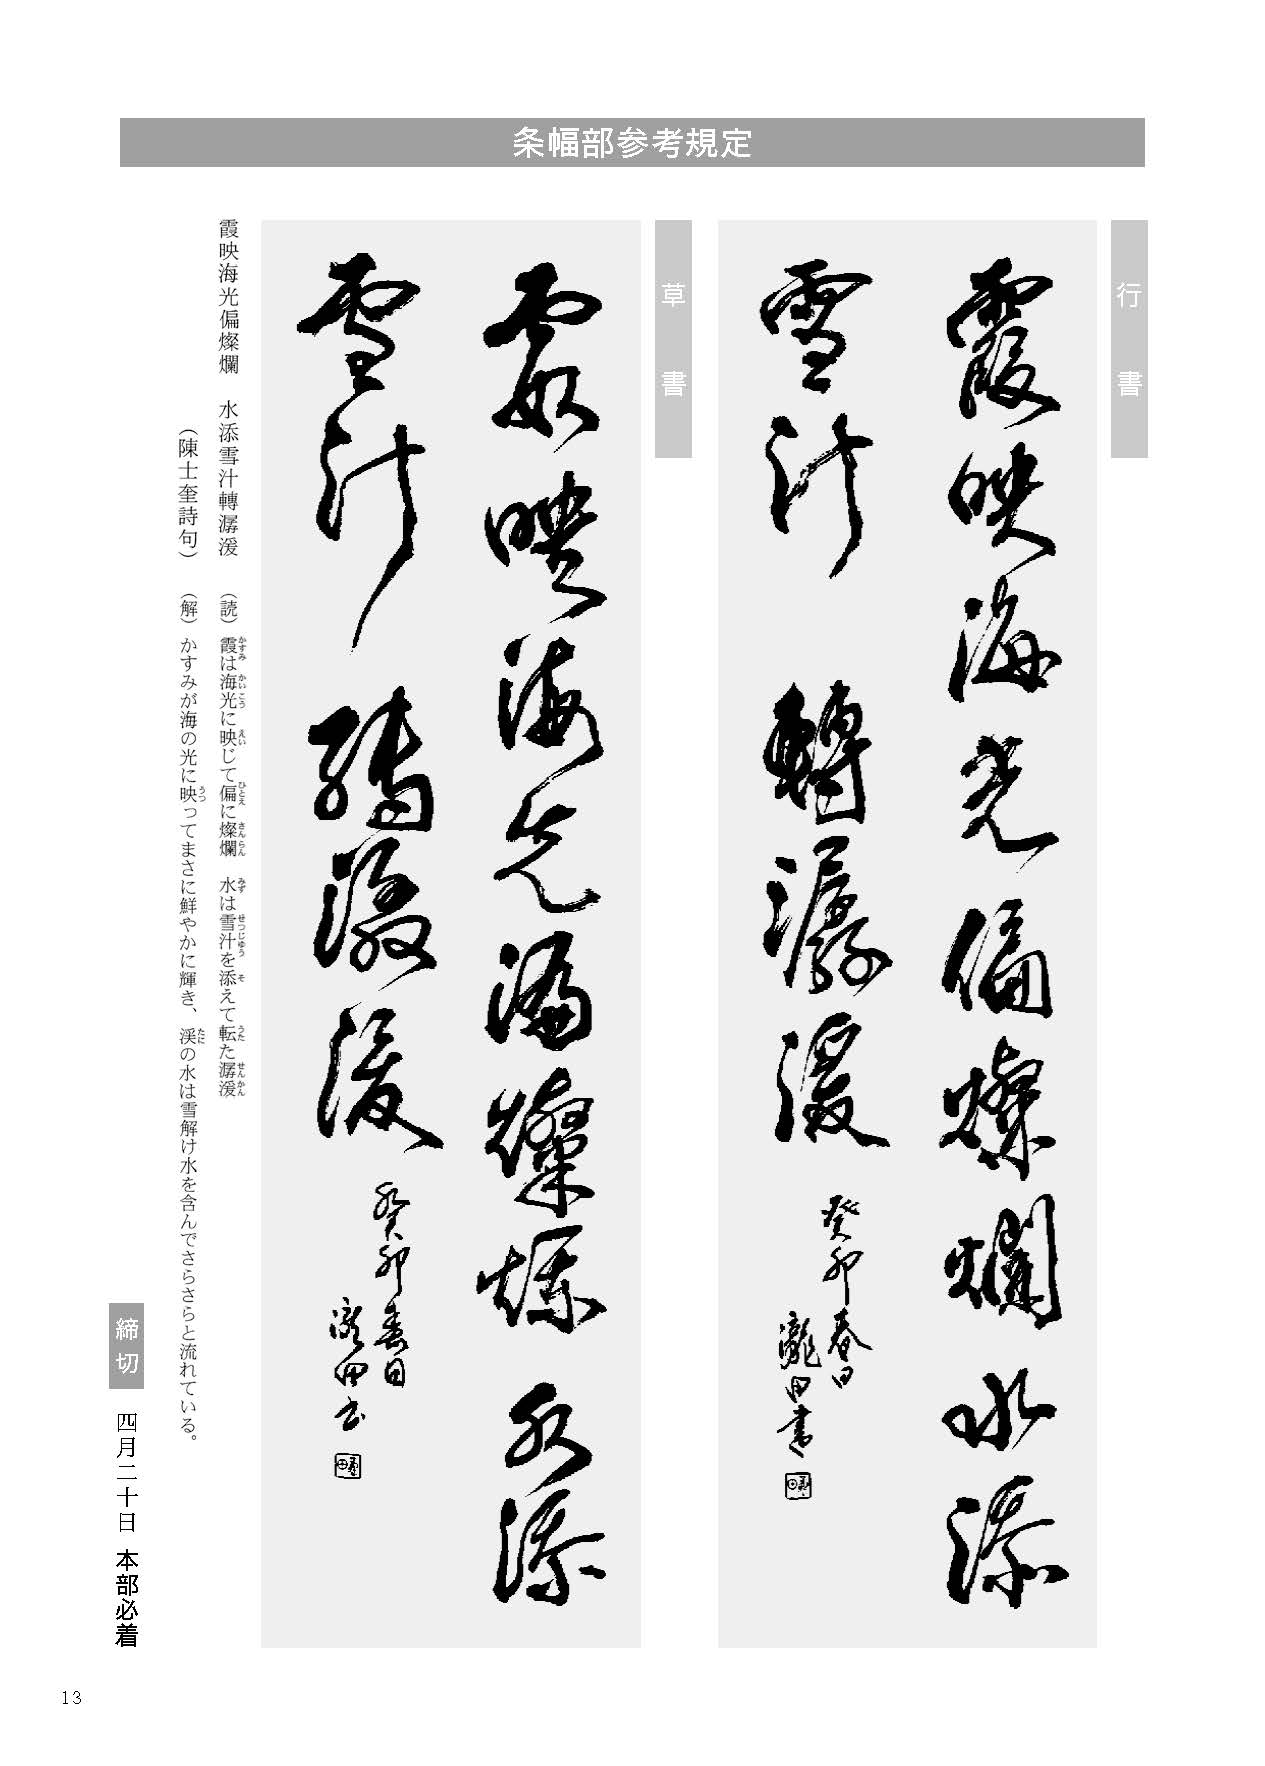 条幅部参考規定
行書
霞映海光偏燦爛水添
雪汁轉潺湲
癸卯春日
瀧田書
草書
霞映海光偏燦爛水添
雪汁轉潺湲
癸卯春日
瀧田書
霞映海光偏燦爛　水添雪汁轉潺湲　（読）霞は海光に映じて偏に燦爛　水は雪汁を添えて転た潺湲
かすみ　かいこう　えい　ひとえ　さんらん　みず　せつじゅう　そ　うた　せんかん
（陳士奎詩句）　（解）かすみが海の光に映ってまさに鮮やかに輝き、渓の水は雪解け水を含んでさらさらと流れている。
うつ　たに
締切　四月二十日　本部必着
13